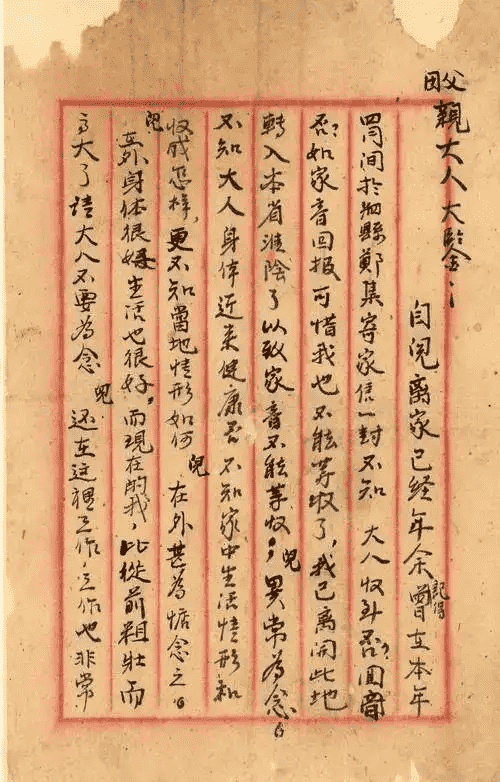 父親大人大鑒：
自兒离家已经年余記得曾在本年
四月间於泗縣鄭集寄家信一封不知 大人收到否？回音
否？如家音回报可惜我也不能等收了，我已离開此地
轉入本省淮陰了以致家音不能等收，兒異常為念。
不知大人身体近来健康否 不知家中生活情形和
收成怎样，更不知當地情形如何 兒在外甚為惦念之。
兒在外身体很好 生活也很好，而現在的我，比從前粗壮而
高大了請大人不要為念 兒还在这裡工作，工作也非常